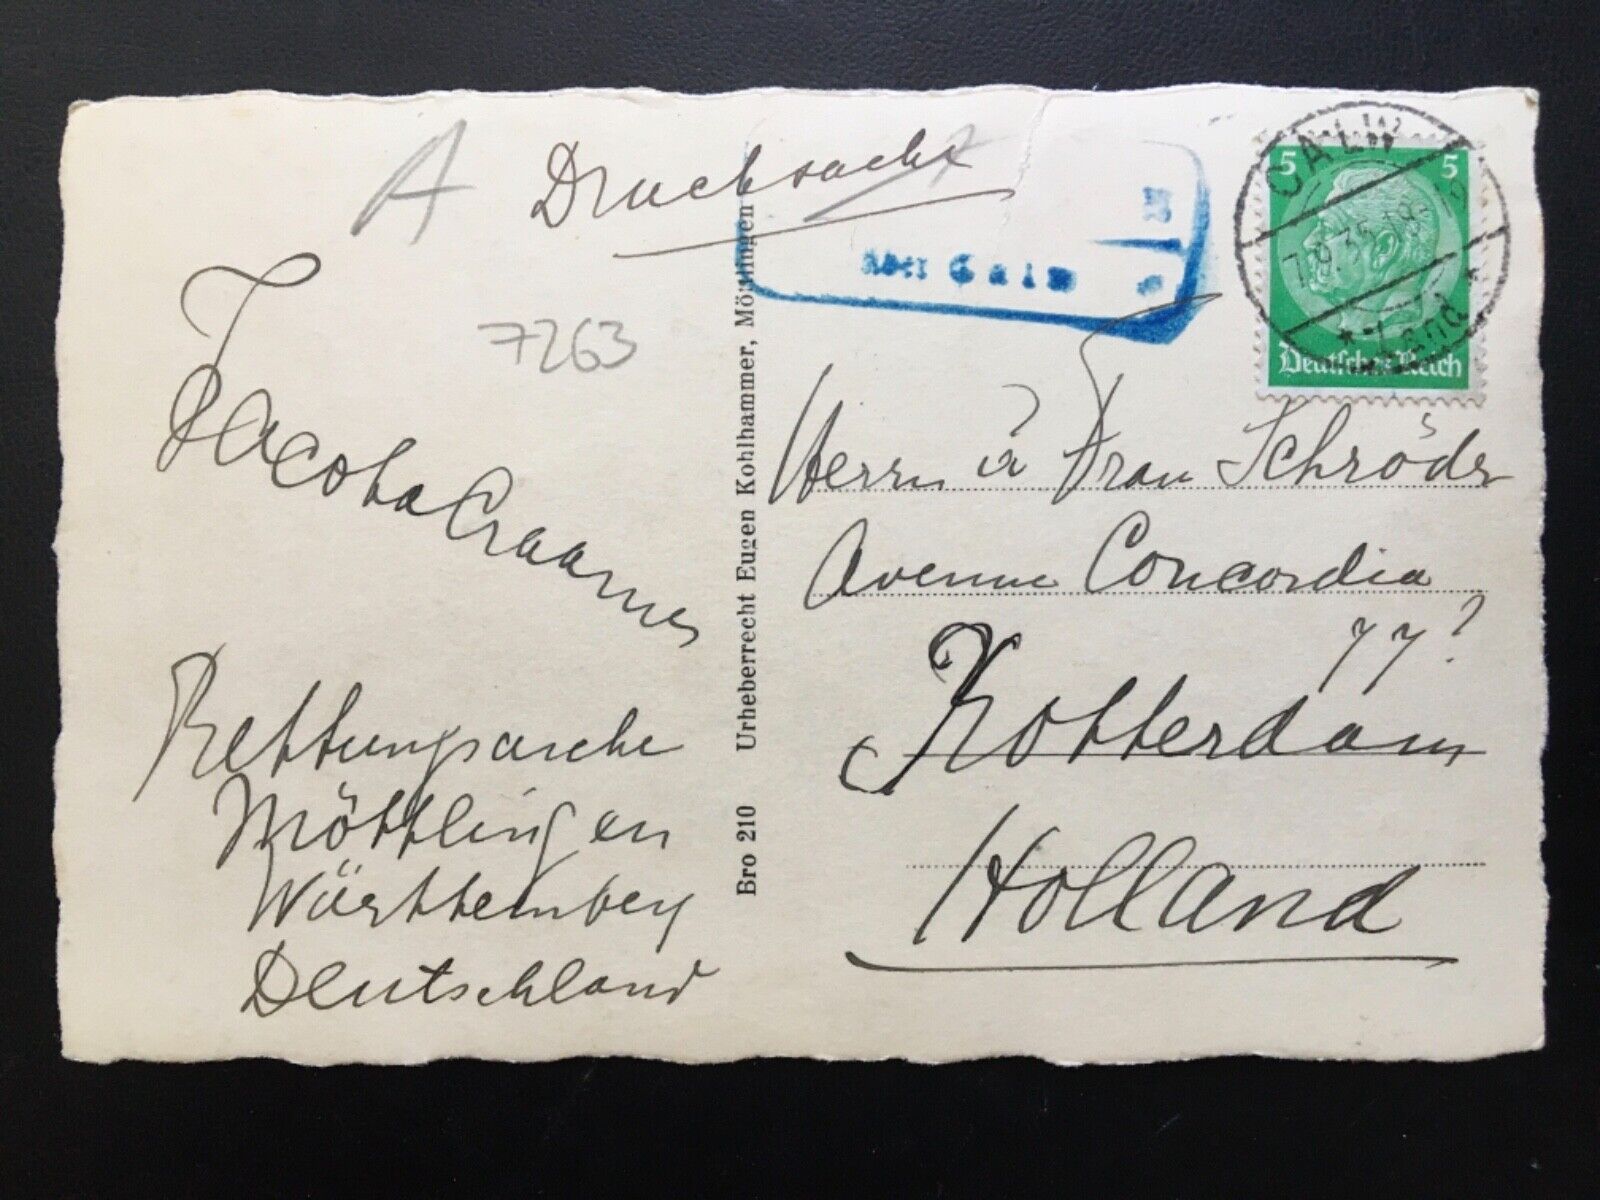 A
Drucksache
7263
Jacoba Craamer
Rettungsarche
Möttlingen
Württemberg
Deutschland
Bro 210 Urheberrecht Eugen Kohlhammer, Möttlingen
Calw
CALW
7.9.35.
Land
5 5
Deutsches Reich
Herrn & Frau Schröder
Avenue Concordia
77?
Rotterdam
Holland